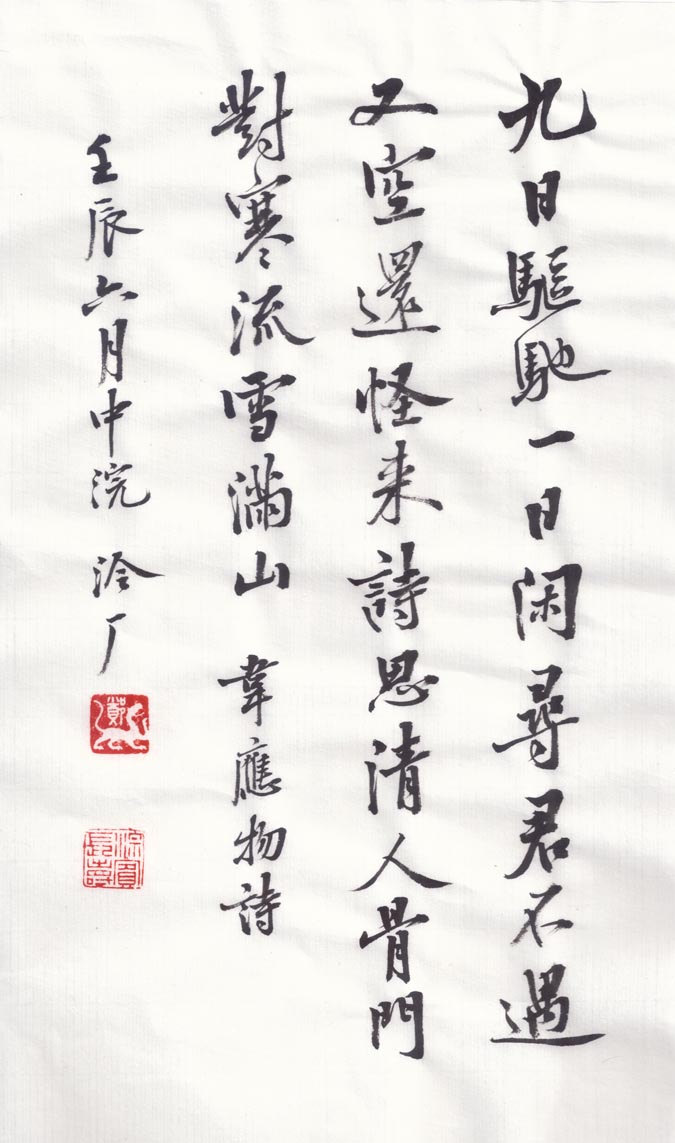 九日驅馳一日闲尋君不遇
又空還怪来詩思清人骨門
對寒流雪滿山 韋應物詩
壬辰六月中浣 泠厂